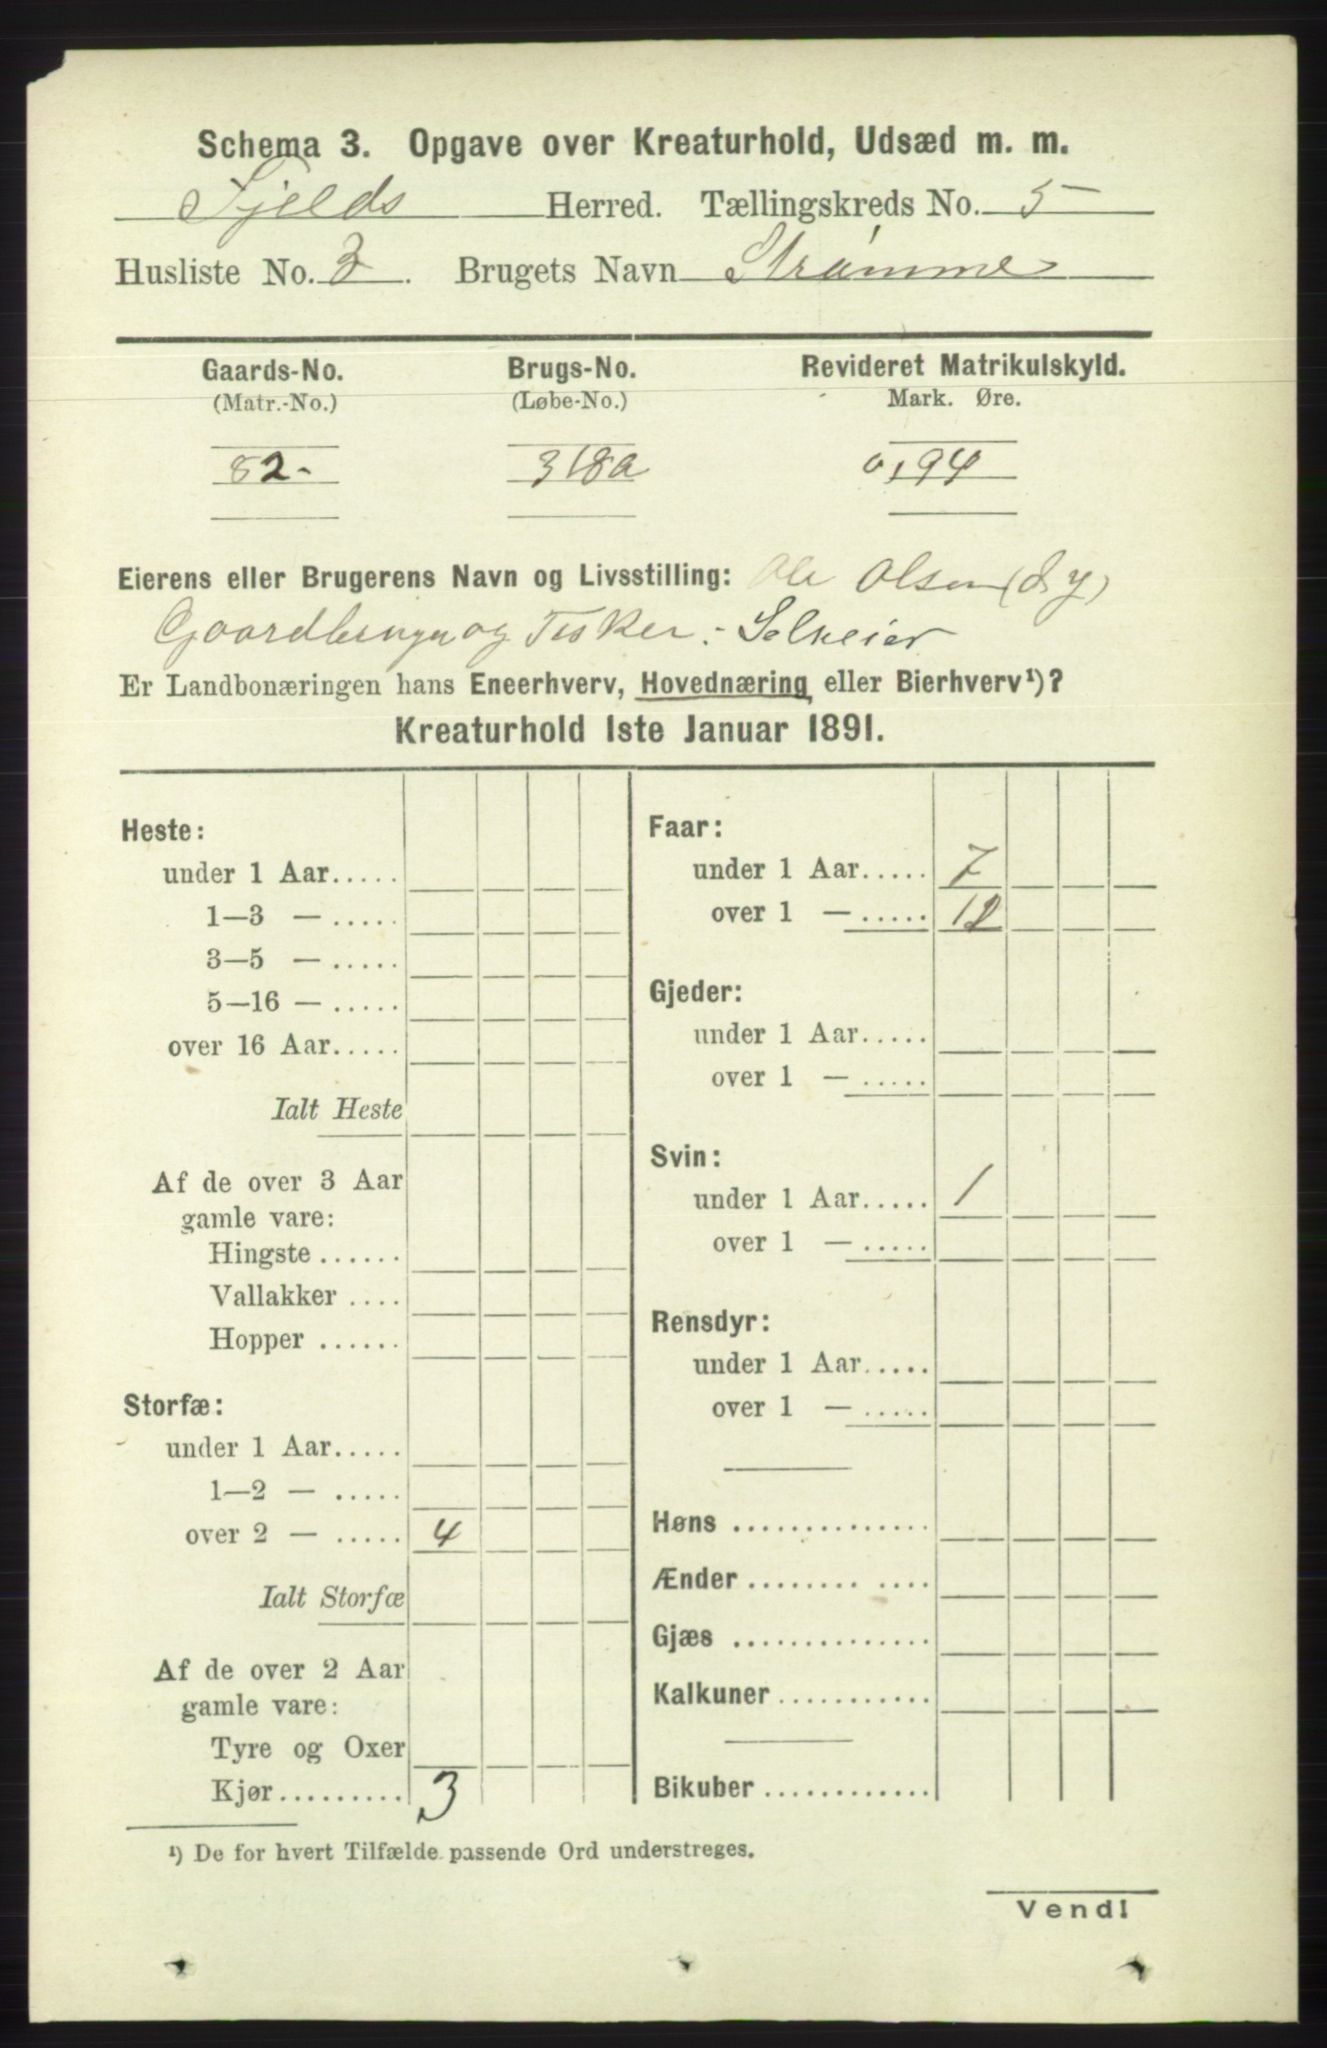 Schema 3. Opgave over Kreaturhold, Udsæd m. m.
Fjelds Herred. Tællingskreds No. 5
Husliste No. 3. Brugets Navn Strømme
Gaards-No. Brugs-No. Revideret Matrikulskyld.
(Matr.-No.) (Løbe-No.) Mark. Øre.
82- 318a 0,94
Eierens eller Brugerens Navn og Livsstilling: Ole Olsen (d. y)
Gaardbruger og Fisker. Selveier
Er Landbonæringen hans Eneerhverv, Hovednæring eller Bierhverv¹)?
Kreaturhold 1ste Januar 1891.
Heste:
under 1 Aar.....
1—3 — .....
3—5 — .....
5—16 — .....
over 16 Aar.....
Ialt Heste
Af de over 3 Aar
gamle vare:
Hingste ......
Vallakker ....
Hopper ......
Storfæ:
under 1 Aar.....
1—2 — .....
over 2 — ..... 4
Ialt Storfæ
Af de over 2 Aar
gamle vare:
Tyre og Oxer
Kjør......... 3
Faar:
under 1 Aar..... 7
over 1 — ..... 12
Gjeder:
under 1 Aar.....
over 1 — .....
Svin:
under 1 Aar..... 1
over 1 — .....
Rensdyr:
under 1 Aar.....
over 1 — .....
Høns ..............
Ænder ........ ....
Gjæs ..............
Kalkuner ...........
Bikuber ............
¹) De for hvert Tilfælde passende Ord understreges.
Vend!